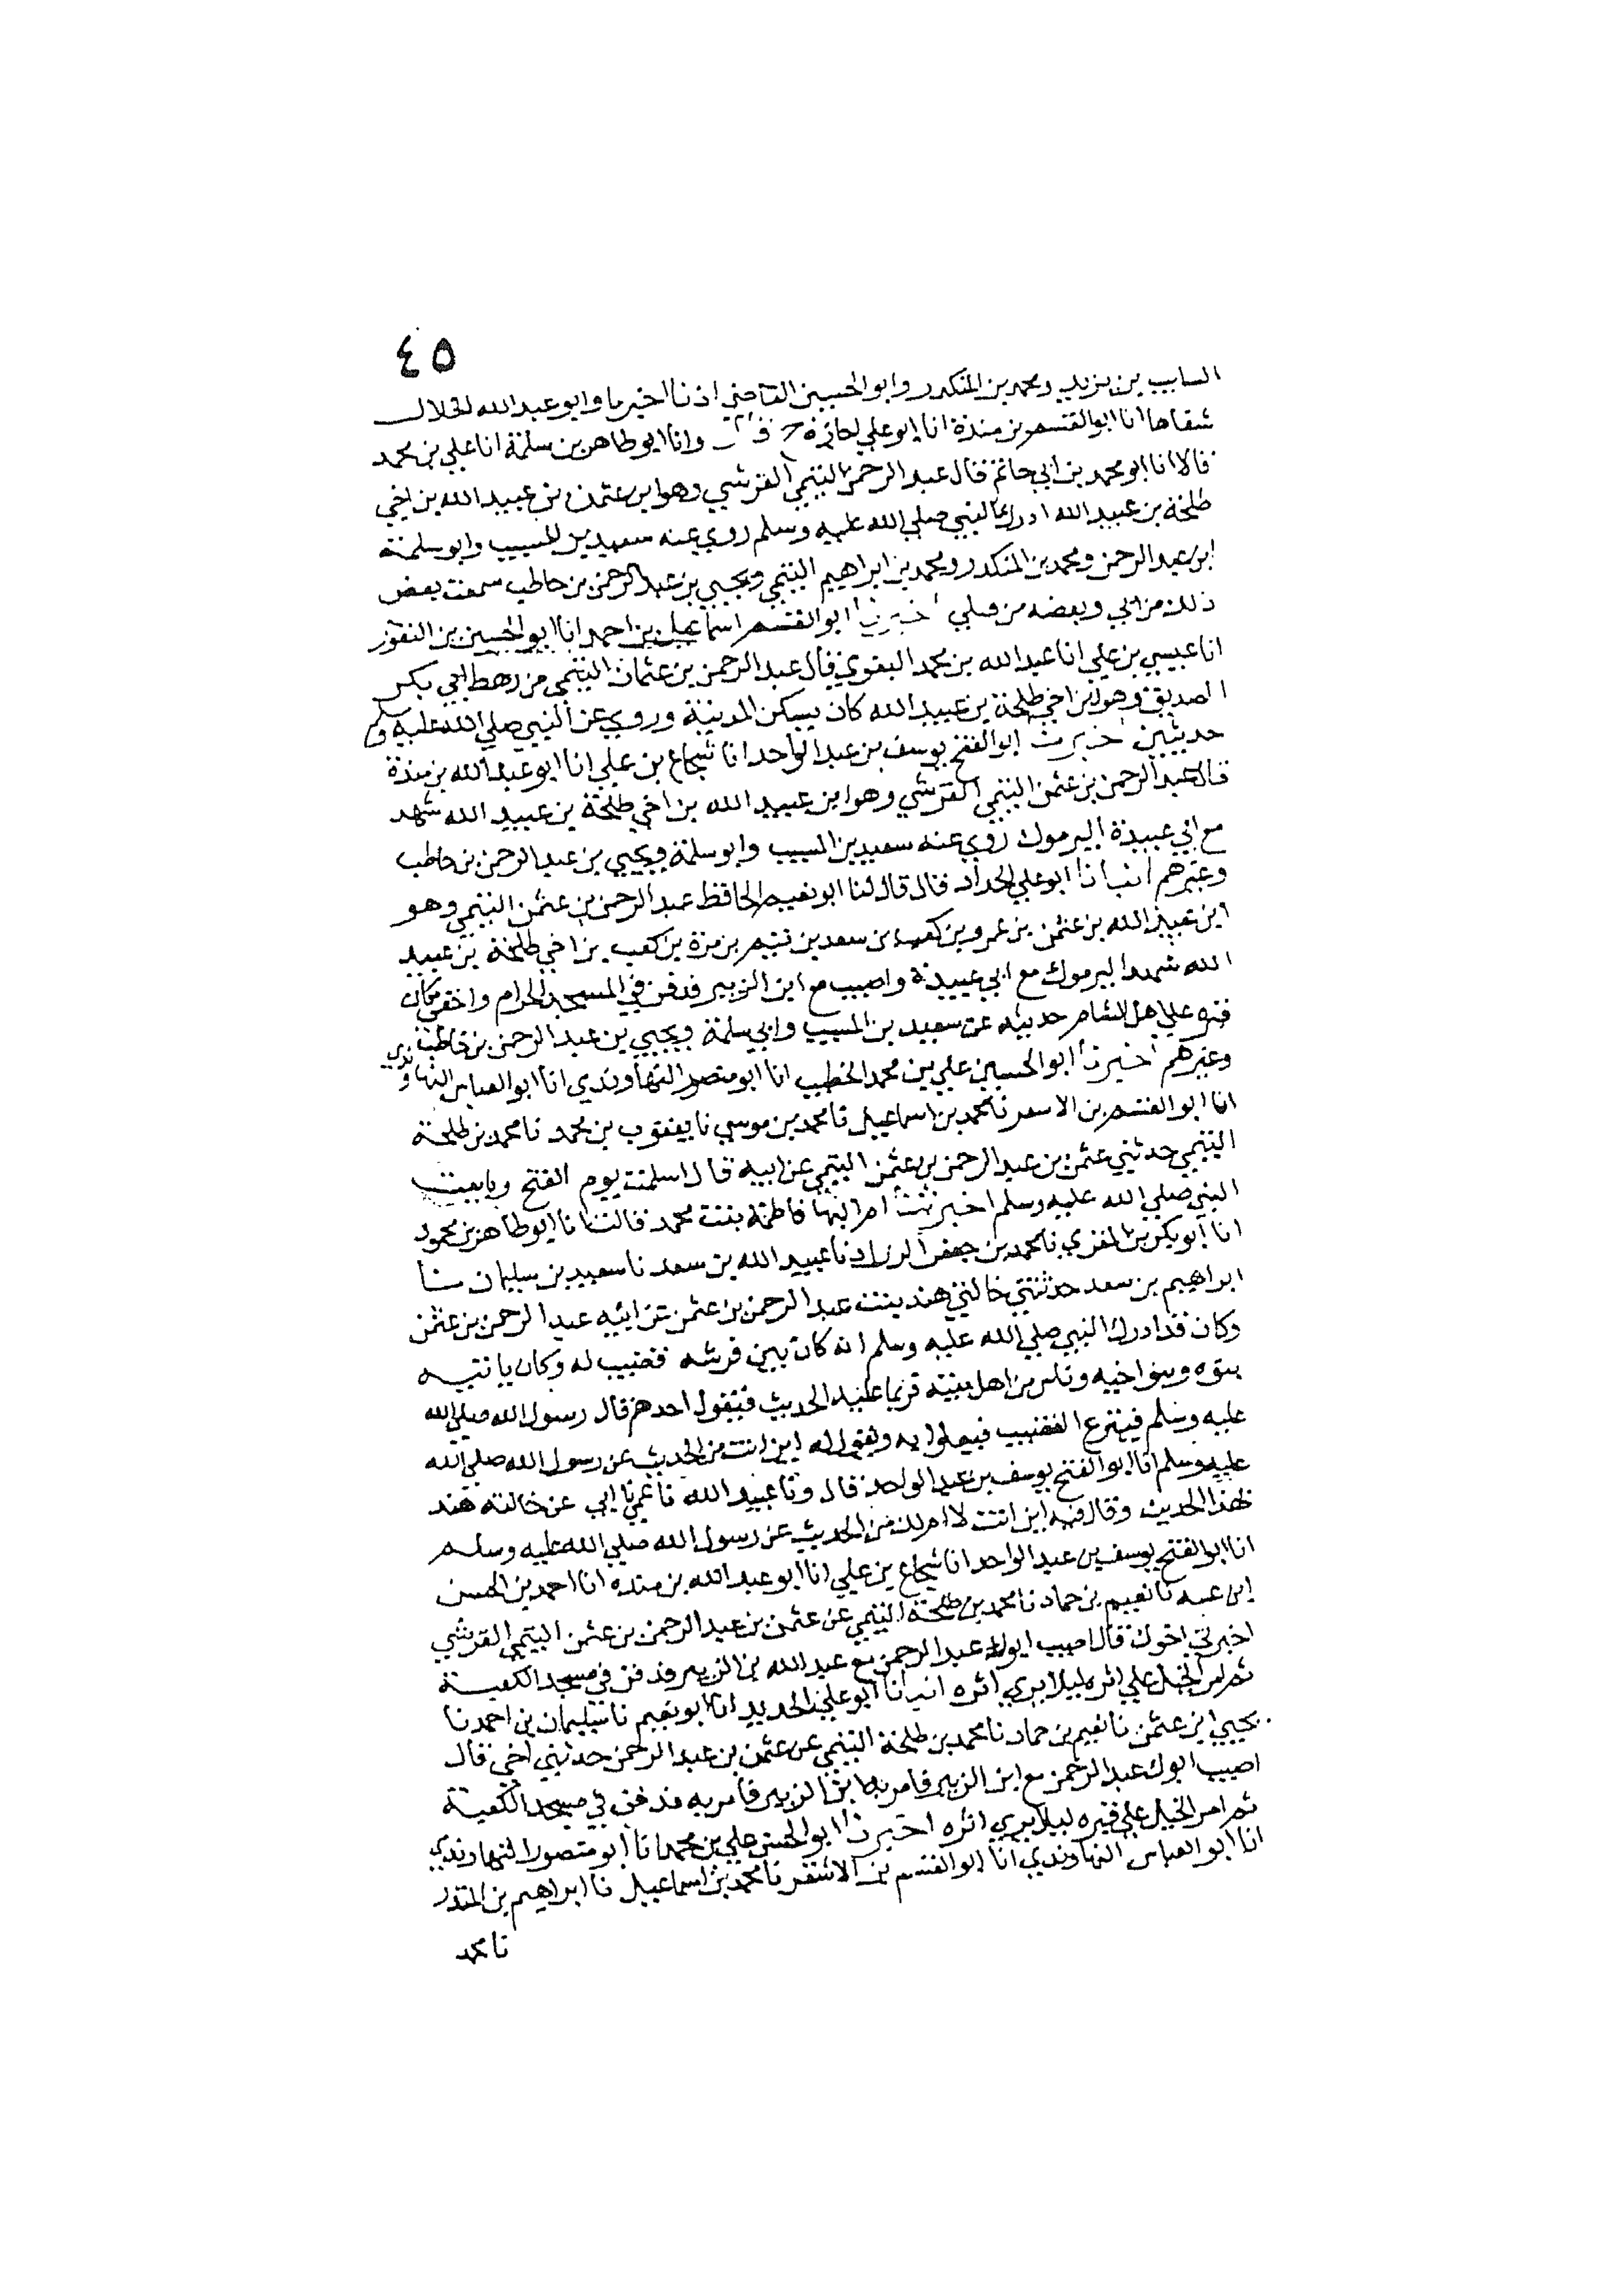 ٤٥
السايب بن يزيد ومحمد بن المنكدر وابو الحسين القاضي اذنا اخبرنا وابو عبد الله الخلال
شفاها انا ابو القسم بن مندة انا ابو علي اجازه ح قال وانا ابو طاهر بن سلمة انا علي بن محمد
قالا انا ابو محمد بن ابي حاتم قال عبد الرحمن التيمي القرشي وهو ابن عثمن بن عبيد الله بن اخي
طلحة بن عبيد الله ادرك النبي صلي الله عليه وسلم روي عنه سعيد بن المسيب وابو سلمة
ابن عبد الرحمن ومحمد بن المنكدر ومحمد بن ابراهيم التيمي ويحيي بن عبد الرحمن بن حاطب سمعت بعض
ذلك من ابي وبعضه من قبلي اخبرنا ابو القسم اسماعيل بن احمد انا ابو الحسين بن النقور
انا عيسي بن علي انا عبد الله بن محمد البغوي قال عبد الرحمن بن عثمان التيمي من رهط ابي بكر
الصديق وهو ابن اخي طلحة بن عبيد الله كان يسكن المدينة وروي عن النبي صلي الله عليه وسلم
حديثين اخبرنا ابو الفتح يوسف بن عبد الواحد انا شجاع بن علي انا ابو عبد الله بن مندة
قال عبد الرحمن بن عثمن التيمي القرشي وهو ابن عبيد الله بن اخي طلحة بن عبيد الله شهد
مع ابي عبيدة اليرموك روي عنه سعيد بن المسيب وابو سلمة ويحيي بن عبد الرحمن بن حاطب
وغيرهم انبانا ابو علي الحداد قال قال لنا ابو نعيم الحافظ عبد الرحمن بن عثمن التيمي وهو
ابن عبيد الله بن عثمن بن عمرو بن كعب بن سعد بن تيم بن مرة بن كعب بن اخي طلحة بن عبيد
الله شهد اليرموك مع ابي عبيدة واصيب مع ابن الزبير فدفن في المسجد الحرام واخفي مكان
قبره علي اهل الشام حديثه عن سعيد بن المسيب وابي سلمة ويحيي بن عبد الرحمن بن حاطب
وغيرهم اخبرنا ابو الحسين علي بن محمد الخطيب انا ابو منصور النهاوندي انا ابو العباس النهاوندي
انا ابو القسم بن الاسقر نا محمد بن اسماعيل نا محمد بن موسي نا يعقوب بن محمد نا محمد بن طلحة
التيمي حدثني عثمن بن عبد الرحمن بن عثمن التيمي عن ابيه قال اسلمت يوم الفتح وبايعت
النبي صلي الله عليه وسلم اخبرتنا ام البها فاطمة بنت محمد قالت انا ابو طاهر بن محمود
انا ابو بكر بن المقري نا محمد بن جعفر الزراد نا عبيد الله بن سعد نا سعيد بن سليمان نا
ابراهيم بن سعد حدثتني خالتي هند بنت عبد الرحمن بن عثمن عن ابيه عبد الرحمن بن عثمن
وكان قد ادرك النبي صلي الله عليه وسلم انه كان يبين فرشه فضيب له وكان ياتيه
بنوه وبنو اخيه وناس من اهل بيته فربما عليه الحديث فيقول احدهم قال رسول الله صلي الله
عليه وسلم فينزع القضيب فيعلوا به ويقول له اين انت من الحديث عن رسول الله صلي الله
عليه وسلم انا ابو الفتح يوسف بن عبد الواحد قال ونا عبيد الله نا عمي نا ابي عن خالته هند
بهذا الحديث وقال فيه اين انت لا ام لك من الحديث عن رسول الله صلي الله عليه وسلم
انا ابو الفتح يوسف بن عبد الواحد انا شجاع بن علي انا ابو عبد الله بن منده انا احمد بن الحسن
ابن عبيه نا نعيم بن حماد نا محمد بن طلحة التيمي عن عثمن بن عبد الرحمن بن عثمن التيمي القرشي
اخبرني اخوك قال اصيب ابوك عبد الرحمن مع عبد الله بن الزبير فدفن في مسجد الكعبة
ثم امر الخيل علي اثره ليلا يري اثره انبانا ابو علي الحديد انا ابو نعيم نا سليمان بن احمد نا
يحيي بن عثمن نا نعيم بن حماد نا محمد بن طلحة التيمي عن عثمن بن عبد الرحمن حدثني اخي قال
اصيب ابوك عبد الرحمن مع ابن الزبير فامر به ابن الزبير فامر به فدفن في مسجد الكعبة
ثم امر الخيل علي قبره ليلا يري اثره اخبرنا ابو الحسن علي بن محمد انا ابو منصور النهاوندي
انا ابو العباس النهاوندي انا ابو القسم بن الاشقر نا محمد بن اسماعيل نا ابراهيم بن المنذر
نا محمد